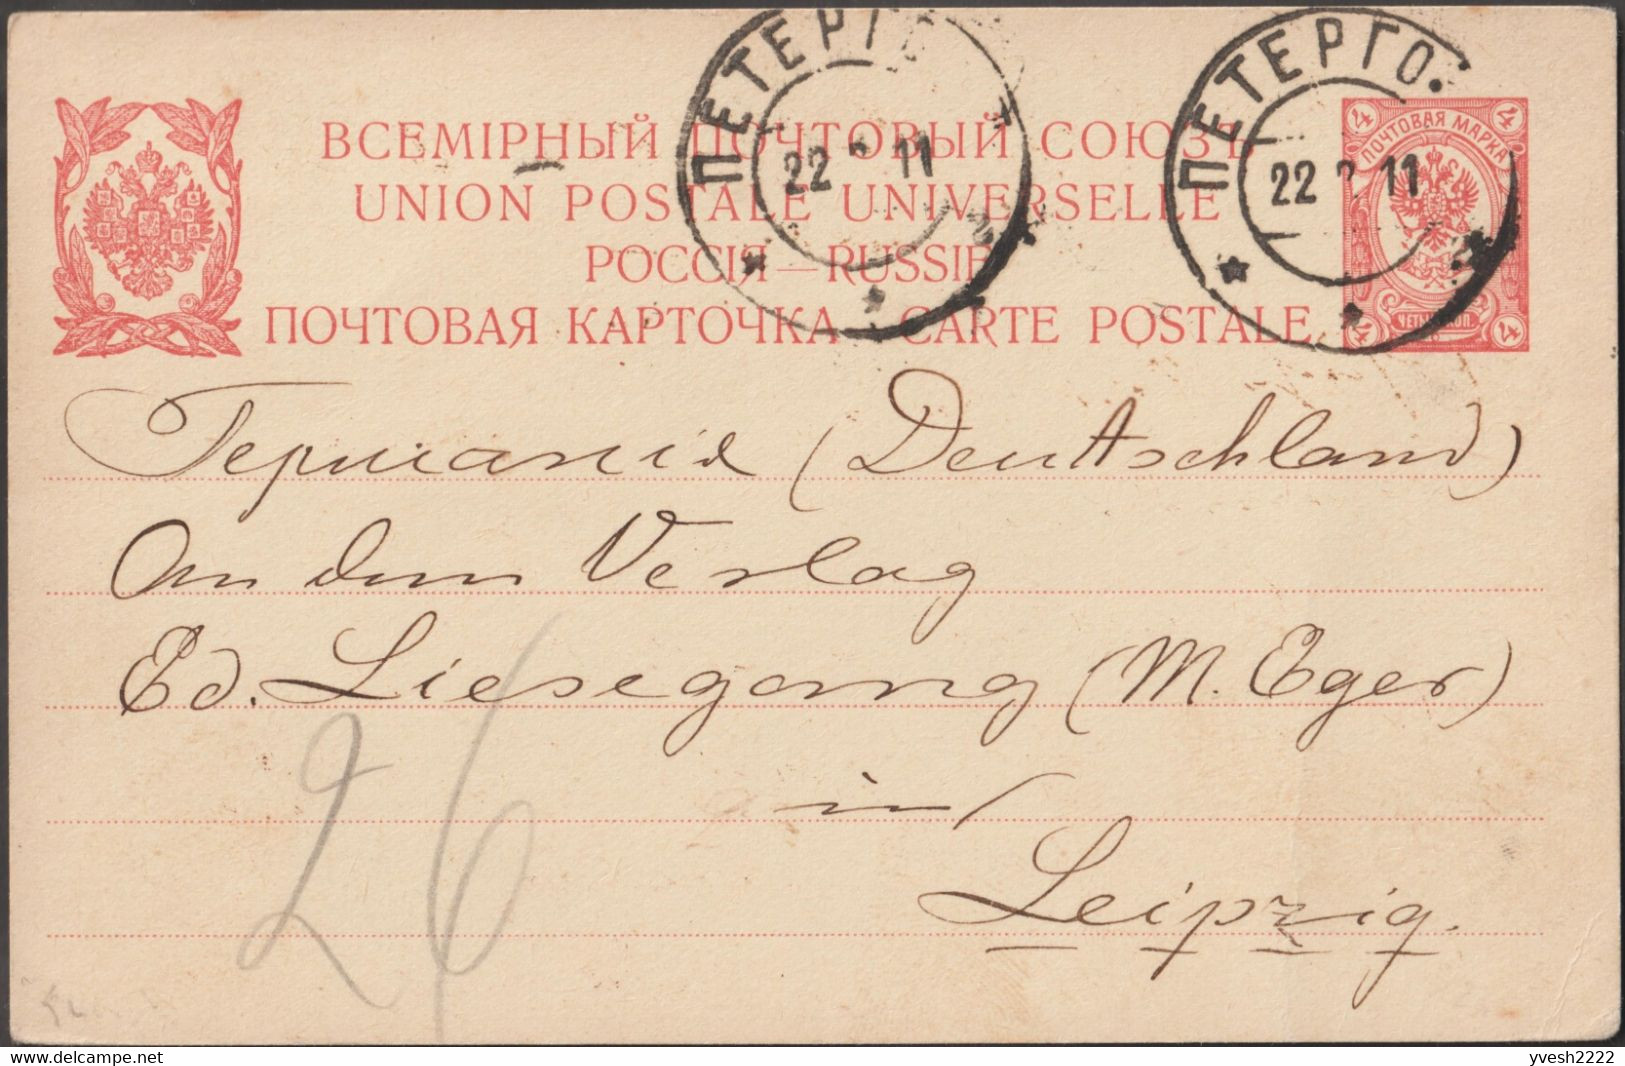 ПЕТЕРГО
22 11
ПЕТЕРГО
22 11
ВСЕМІРНЫЙ ПОЧТОВЫЙ СОЮЗЪ
UNION POSTALE UNIVERSELLE
РОССІЯ — RUSSIE
ПОЧТОВАЯ КАРТОЧКА — CARTE POSTALE
4 4
ПОЧТОВАЯ МАРКА
4 4
Германія (Deutschland)
An den Verlag
Ed. Liesegang (M. Eger)
in
Leipzig.
26
yvesh2222